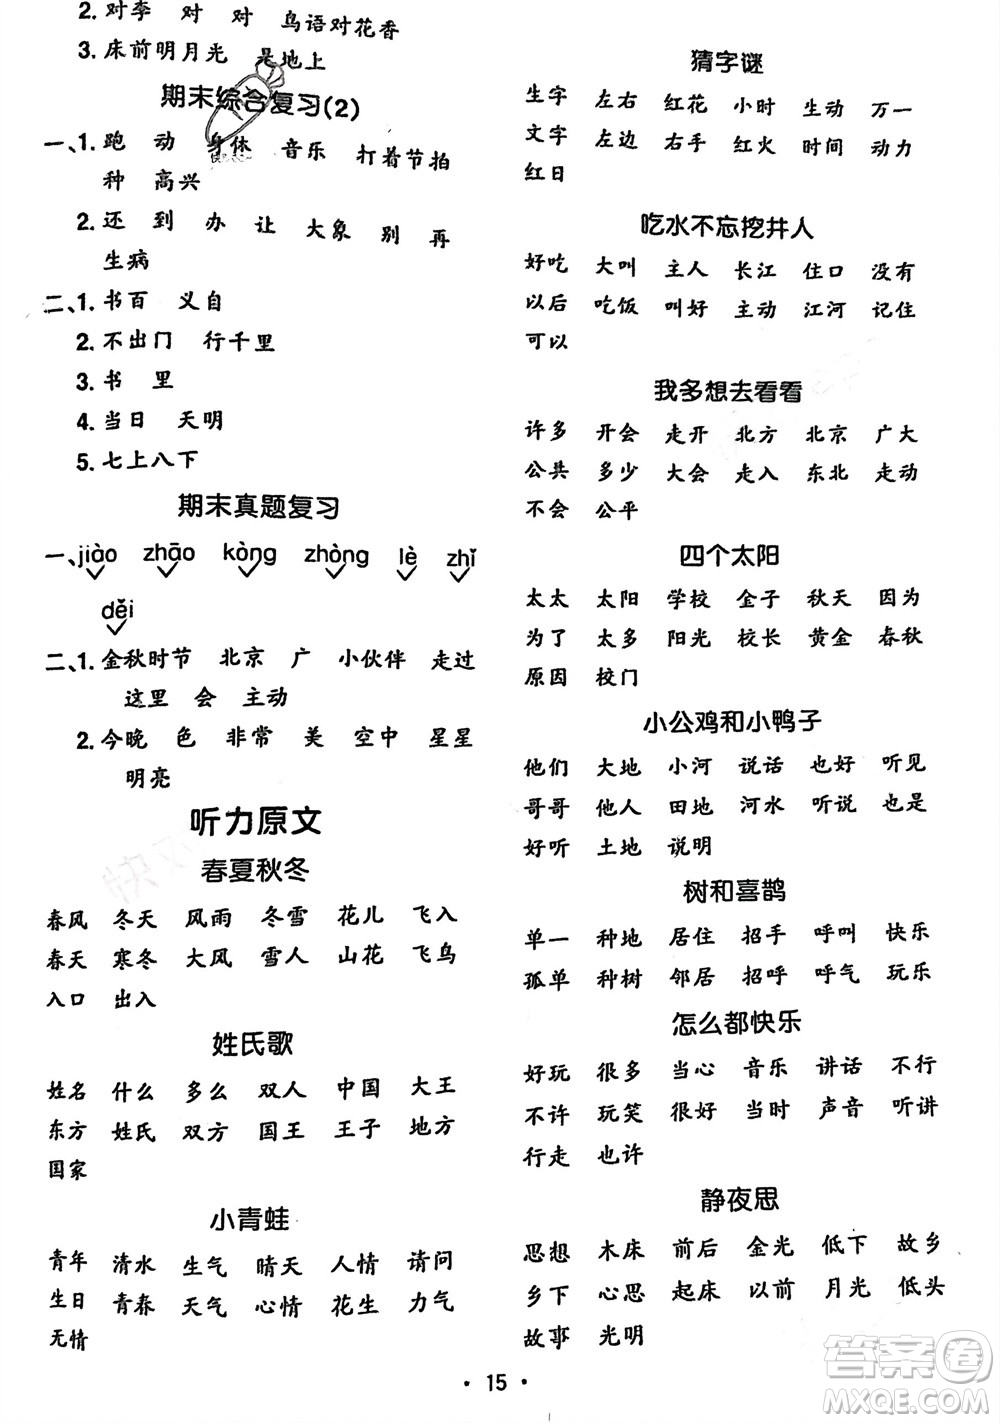 2. 对李 对 对 鸟语对花香
3. 床前明月光 是地上
期末综合复习(2)
一、1. 跑 动 身体 音乐 打着节拍
种 高兴
2. 还 到 办 让 大象 别 再
生病
二、1. 书百 义自
2. 不出门 行千里
3. 书 里
4. 当日 天明
5. 七上八下
期末真题复习
一、jiào zhāo kòng zhòng lè zhǐ
děi
二、1. 金秋时节 北京 广 小伙伴 走过
这里 会 主动
2. 今晚 色 非常 美 空中 星星
明亮
听力原文
春夏秋冬
春风 冬天 风雨 冬雪 花儿 飞入
春天 寒冬 大风 雪人 山花 飞鸟
入口 出入
姓氏歌
姓名 什么 多么 双人 中国 大王
东方 姓氏 双方 国王 王子 地方
国家
小青蛙
青年 清水 生气 晴天 人情 请问
生日 青春 天气 心情 花生 力气
无情
猜字谜
生字 左右 红花 小时 生动 万一
文字 左边 右手 红火 时间 动力
红日
吃水不忘挖井人
好吃 大叫 主人 长江 住口 没有
以后 吃饭 叫好 主动 江河 记住
可以
我多想去看看
许多 开会 走开 北方 北京 广大
公共 多少 大会 走入 东北 走动
不会 公平
四个太阳
太太 太阳 学校 金子 秋天 因为
为了 太多 阳光 校长 黄金 春秋
原因 校门
小公鸡和小鸭子
他们 大地 小河 说话 也好 听见
哥哥 他人 田地 河水 听说 也是
好听 土地 说明
树和喜鹊
单一 种地 居住 招手 呼叫 快乐
孤单 种树 邻居 招呼 呼气 玩乐
怎么都快乐
好玩 很多 当心 音乐 讲话 不行
不许 玩笑 很好 当时 声音 听讲
行走 也许
静夜思
思想 木床 前后 金光 低下 故乡
乡下 心思 起床 以前 月光 低头
故事 光明
· 15 ·
答案圈
MXQE.COM